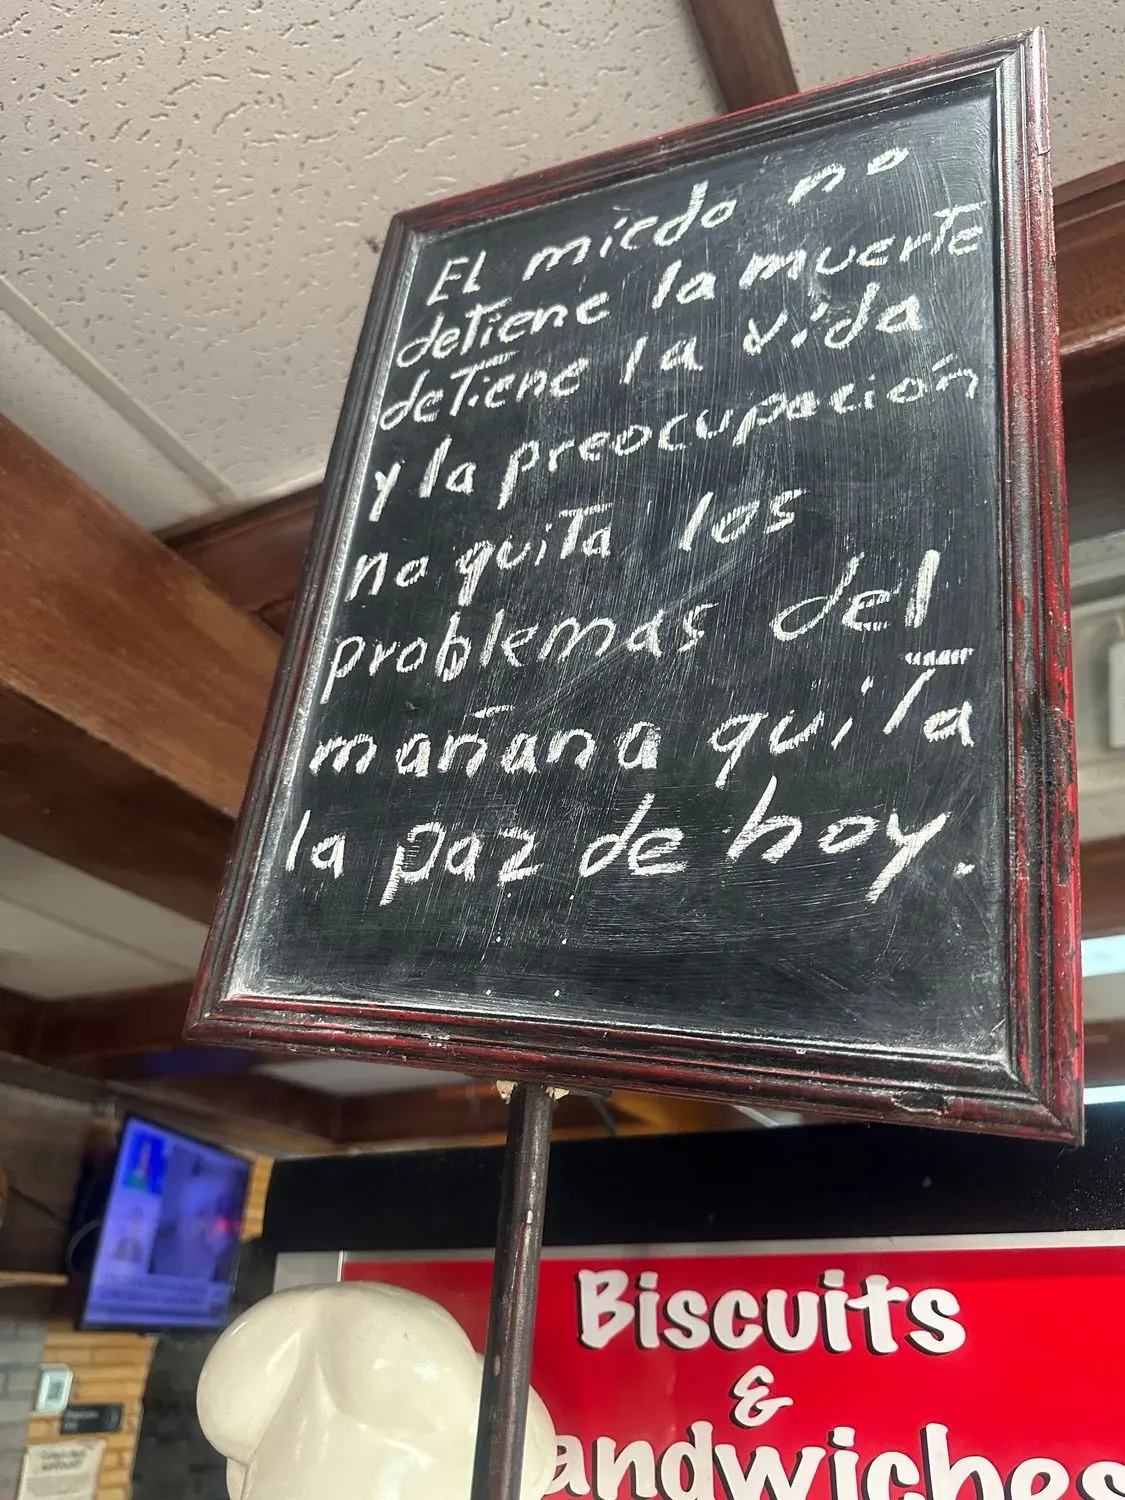 El miedo no
detiene la muerte
detiene la vida
y la preocupación
no quita los
problemas del
mañana quita
la paz de hoy.
Biscuits
&
andwiches